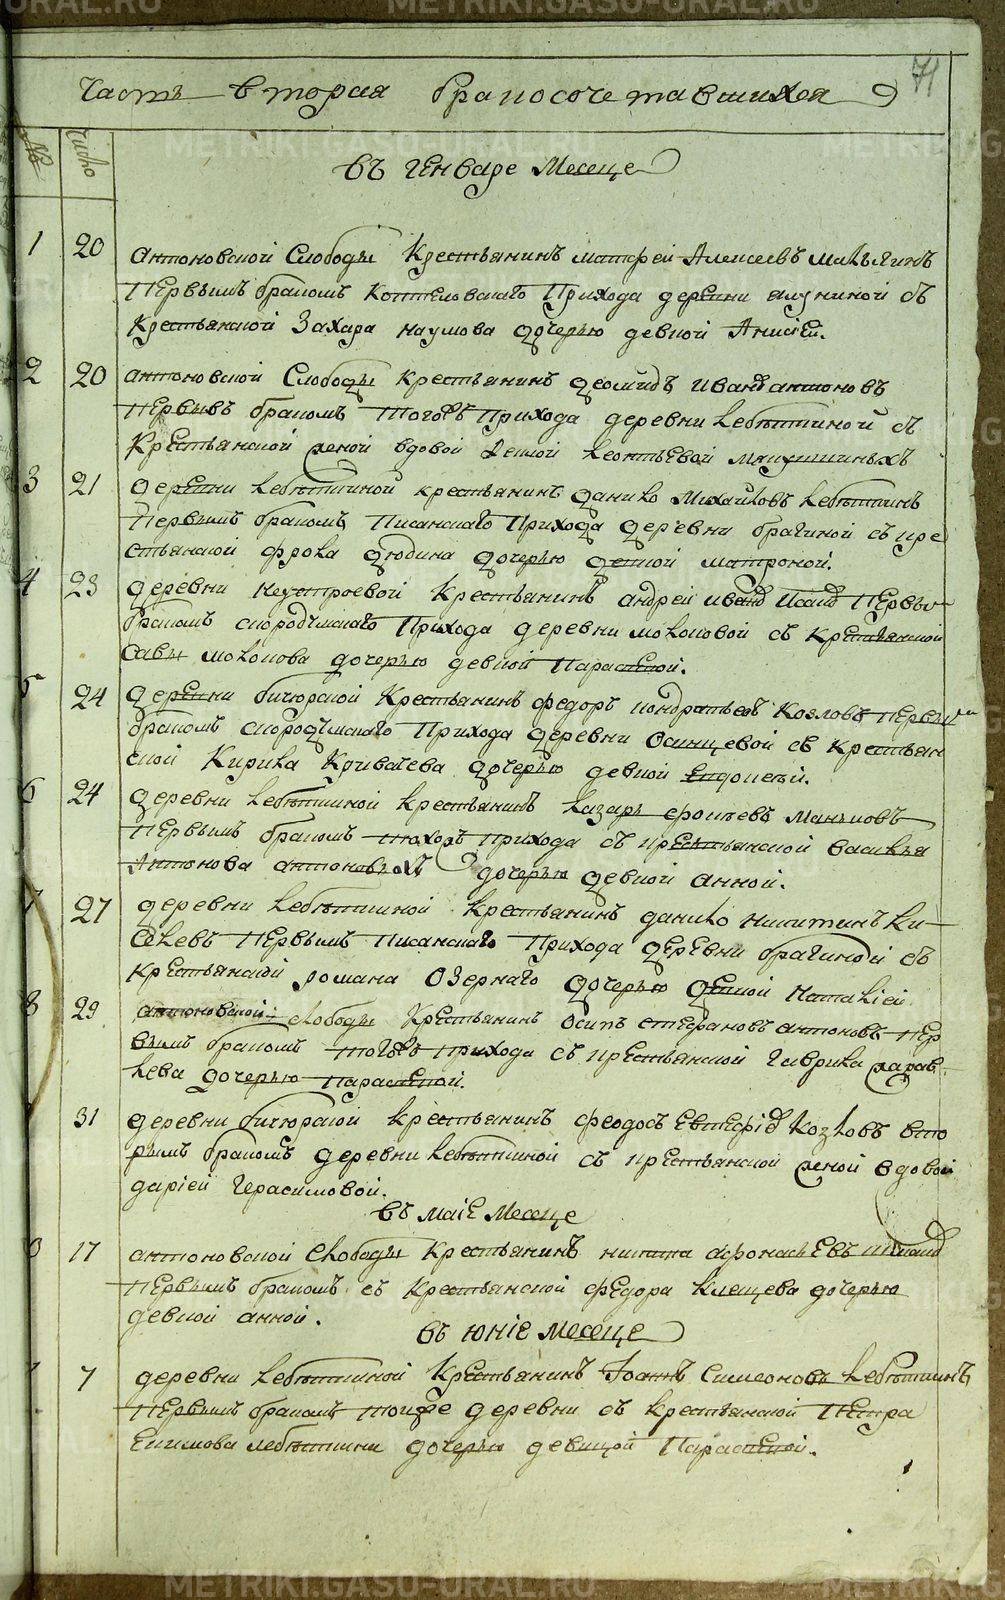 METRIKI.GASO-URAL.RU
71
Часть вторая бракосочетавшихся
№ Число
въ генваре месеце
1 20 антоновской Слободы крестьянинъ матфеи Алексеевъ
первымъ бракомъ Коптеловскаго Прихода деревни съ
крестьянской Захара наумова дочерью девкой Анисіей.
2 20 антоновской Слободы крестьянинъ Иванъ антоновъ
первывъ бракомъ тогожъ Прихода деревни лебѣткиной съ
крестьянской женой вдовой Леонтьевой
3 21 деревни лебѣткиной крестьянинъ данило Михайловъ лебѣткинъ
первымъ бракомъ Писанскаго Прихода деревни брагиной съ кре
стьянской фрола дюдина дочерью девкой матроной.
4 23 деревни неустроевой крестьянинъ андрей Иванъ первы
бракомъ скородумскаго Прихода деревни молоковой съ крестьянской
Савы молокова дочерью девкой Параскевой.
5 24 деревни бичюрской крестьянинъ федоръ кондратьевъ Козловъ первымъ
бракомъ скородумскаго Прихода деревни Осинцевой съ крестьян
ской Кирила Кривачева дочерью девкой Евдокеей.
6 24 деревни лебѣткиной крестьянинъ лазарь маньковъ
первымъ бракомъ тогожъ прихода съ крестьянской василья
Антонова антоновыхъ дочерью девкой анной.
7 27 деревни лебѣткиной крестьянинъ данило никитинъ ки-
селевъ первымъ Писанскаго Прихода деревни брагиной съ
крестьянской романа Озернаго дочерью девкой Наталіей
8 29 антоновской слободы крестьянинъ Осипъ стефановъ антоновъ пер
вымъ бракомъ тогожъ прихода съ крестьянской Гаврила
лева дочерью Параскевой.
31 деревни бичюрской крестьянинъ феодосъ Козловъ вто
рымъ бракомъ деревни лебѣткиной съ крестьянской женой вдовой
дарiей Герасимовой.
въ маіе месеце
17 антоновской слободы крестьянинъ никита афонасьевъ
первымъ бракомъ съ крестьянской федора клещева дочерью
девкой анной.
въ юніе месеце
7 деревни лебѣткиной крестьянинъ Іоанъ Симеоновъ лебѣткинъ
первымъ бракомъ тойже деревни съ крестьянской петра
екимова лебѣткина дочерью девицой Параскевой.
METRIKI.GASO-URAL.RU